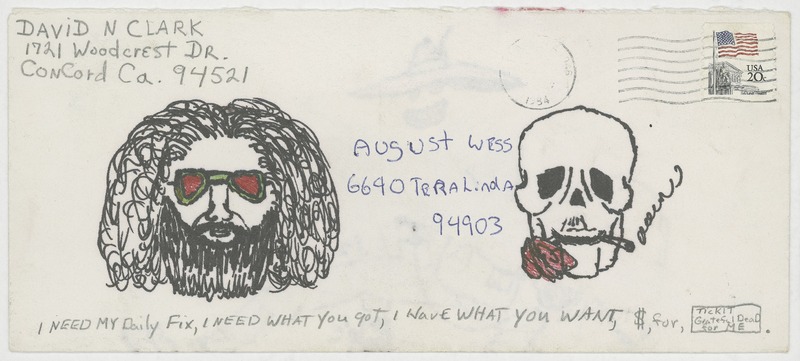 DAVID N CLARK
1721 Woodcrest DR.
Concord Ca. 94521
USA
20c
AUGUST WESS
6640 TERALindA
94903
I NEED MY Daily Fix, I NEED WHAT You got, I Have WHAT YOU WANT, $, for,
TickIT
Grateful Dead
for ME